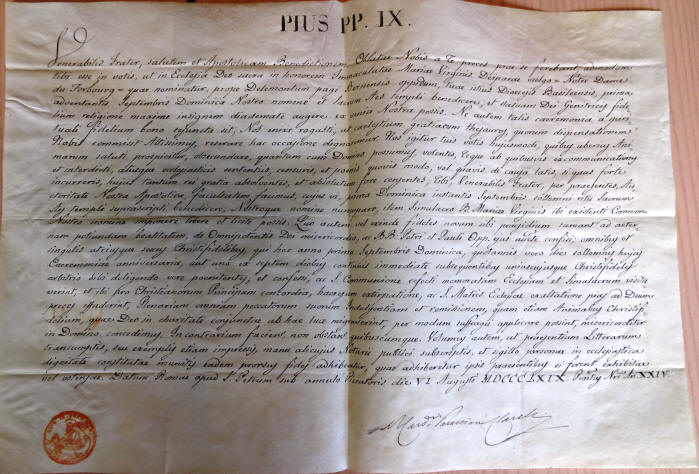 PIUS PP. IX.
Venerabilis Frater, salutem et Apostolicam Benedictionem. Oblatae Nobis a Te preces prae se ferebant, admodum
tibi esse in votis, ut in Ecclesia Deo sacra in honorem Immaculatae Mariae Virginis Deiparae vulgo = Notre Dame
du Vorbourg = quae nominatur, prope Delemontum pagi Bernensis oppidum, tuae istius Dioecesis Basileensis, prima
adventantis Septembris Dominica Nostro nomine et Sacrum Aes templi benedicere, et statuam Dei Genitricis fide
hum religione maxime insignem diademate augere ex venia Nostra possis. Ne autem talis caeremonia a spiri
tuali fidelium bono sejuncta sit, Nos enixe rogasti, ut caelestium gratiarum thesauros, quorum dispensationem
Nobis commisit Altissimus, reserare hac occasione dignaremur. Nos igitur tuis votis hujusmodi, quibus uberius Ani
marum saluti prospiciatur, obsecundare, quantum cum Domino possumus volentes, Teque ab quibusvis excommunicationis
et interdicti, aliisque ecclesiasticis sententiis, censuris, et poenis quovis modo, vel quavis de causa latis, si quas forte
incurreris, hujus tantum rei gratia absolventes, et absolutum fore censentes; Tibi, Venerabilis Frater, per praesentes, Au
ctoritate Nostra Apostolica, facultatem facimus, cujus vi, prima Dominica instantis Septembris sollemni ritu Sacrum
Aes templo benedicere, Nostroque nomine Simulacro B. Mariae Virginis ibi existenti Coronam
Nostro nomine imponere libere et licite possis. Quo autem vel exinde fideles novum sibi praesidium sumant ad aeter
nam potiundam beatitatem, de Omnipotentis Dei misericordia, ac BB. Petri et Pauli App. ejus auctte confisi, omnibus et
singulis utriusque sexus Christifidelibus, qui hac anno prima Septembris Dominica, quotannis vero die sollemnis hujus
Caeremoniae anniversaria, aut uno ex septem diebus continuis immediate subsequentibus uniuscujusque Christifidelis
arbitrio sibi deligendo vere poenitentes, et confessi, ac S. Communione refecti memoratam Ecclesiam et Simulacrum visita
verint, et ibi pro Christianorum Principum concordia, haeresum extirpatione, ac S. Matris Ecclesiae exaltatione pias ad Deum
preces effuderint, Plenariam omnium peccatorum suorum Indulgentiam et remissionem, quam etiam Animabus Christifi
delium, quae Deo in charitate conjunctae ab hac luce migraverint, per modum suffragii applicare possint, misericorditer
in Domino concedimus. In contrarium facien. non obstan. quibuscumque. Volumus autem, ut praesentium Literarum
transumptis, seu exemplis etiam impressis, manu alicujus Notarii publici subscriptis, et sigillo personae in ecclesiastica
dignitate constitutae munitis eadem prorsus fides adhibeatur, quae adhiberetur ipsis praesentibus si forent exhibitae
vel ostensae. Datum Romae apud S. Petrum sub annulo Piscatoris die VI Augusti MDCCCLXIX. Pontus Nri. An. XXIV.